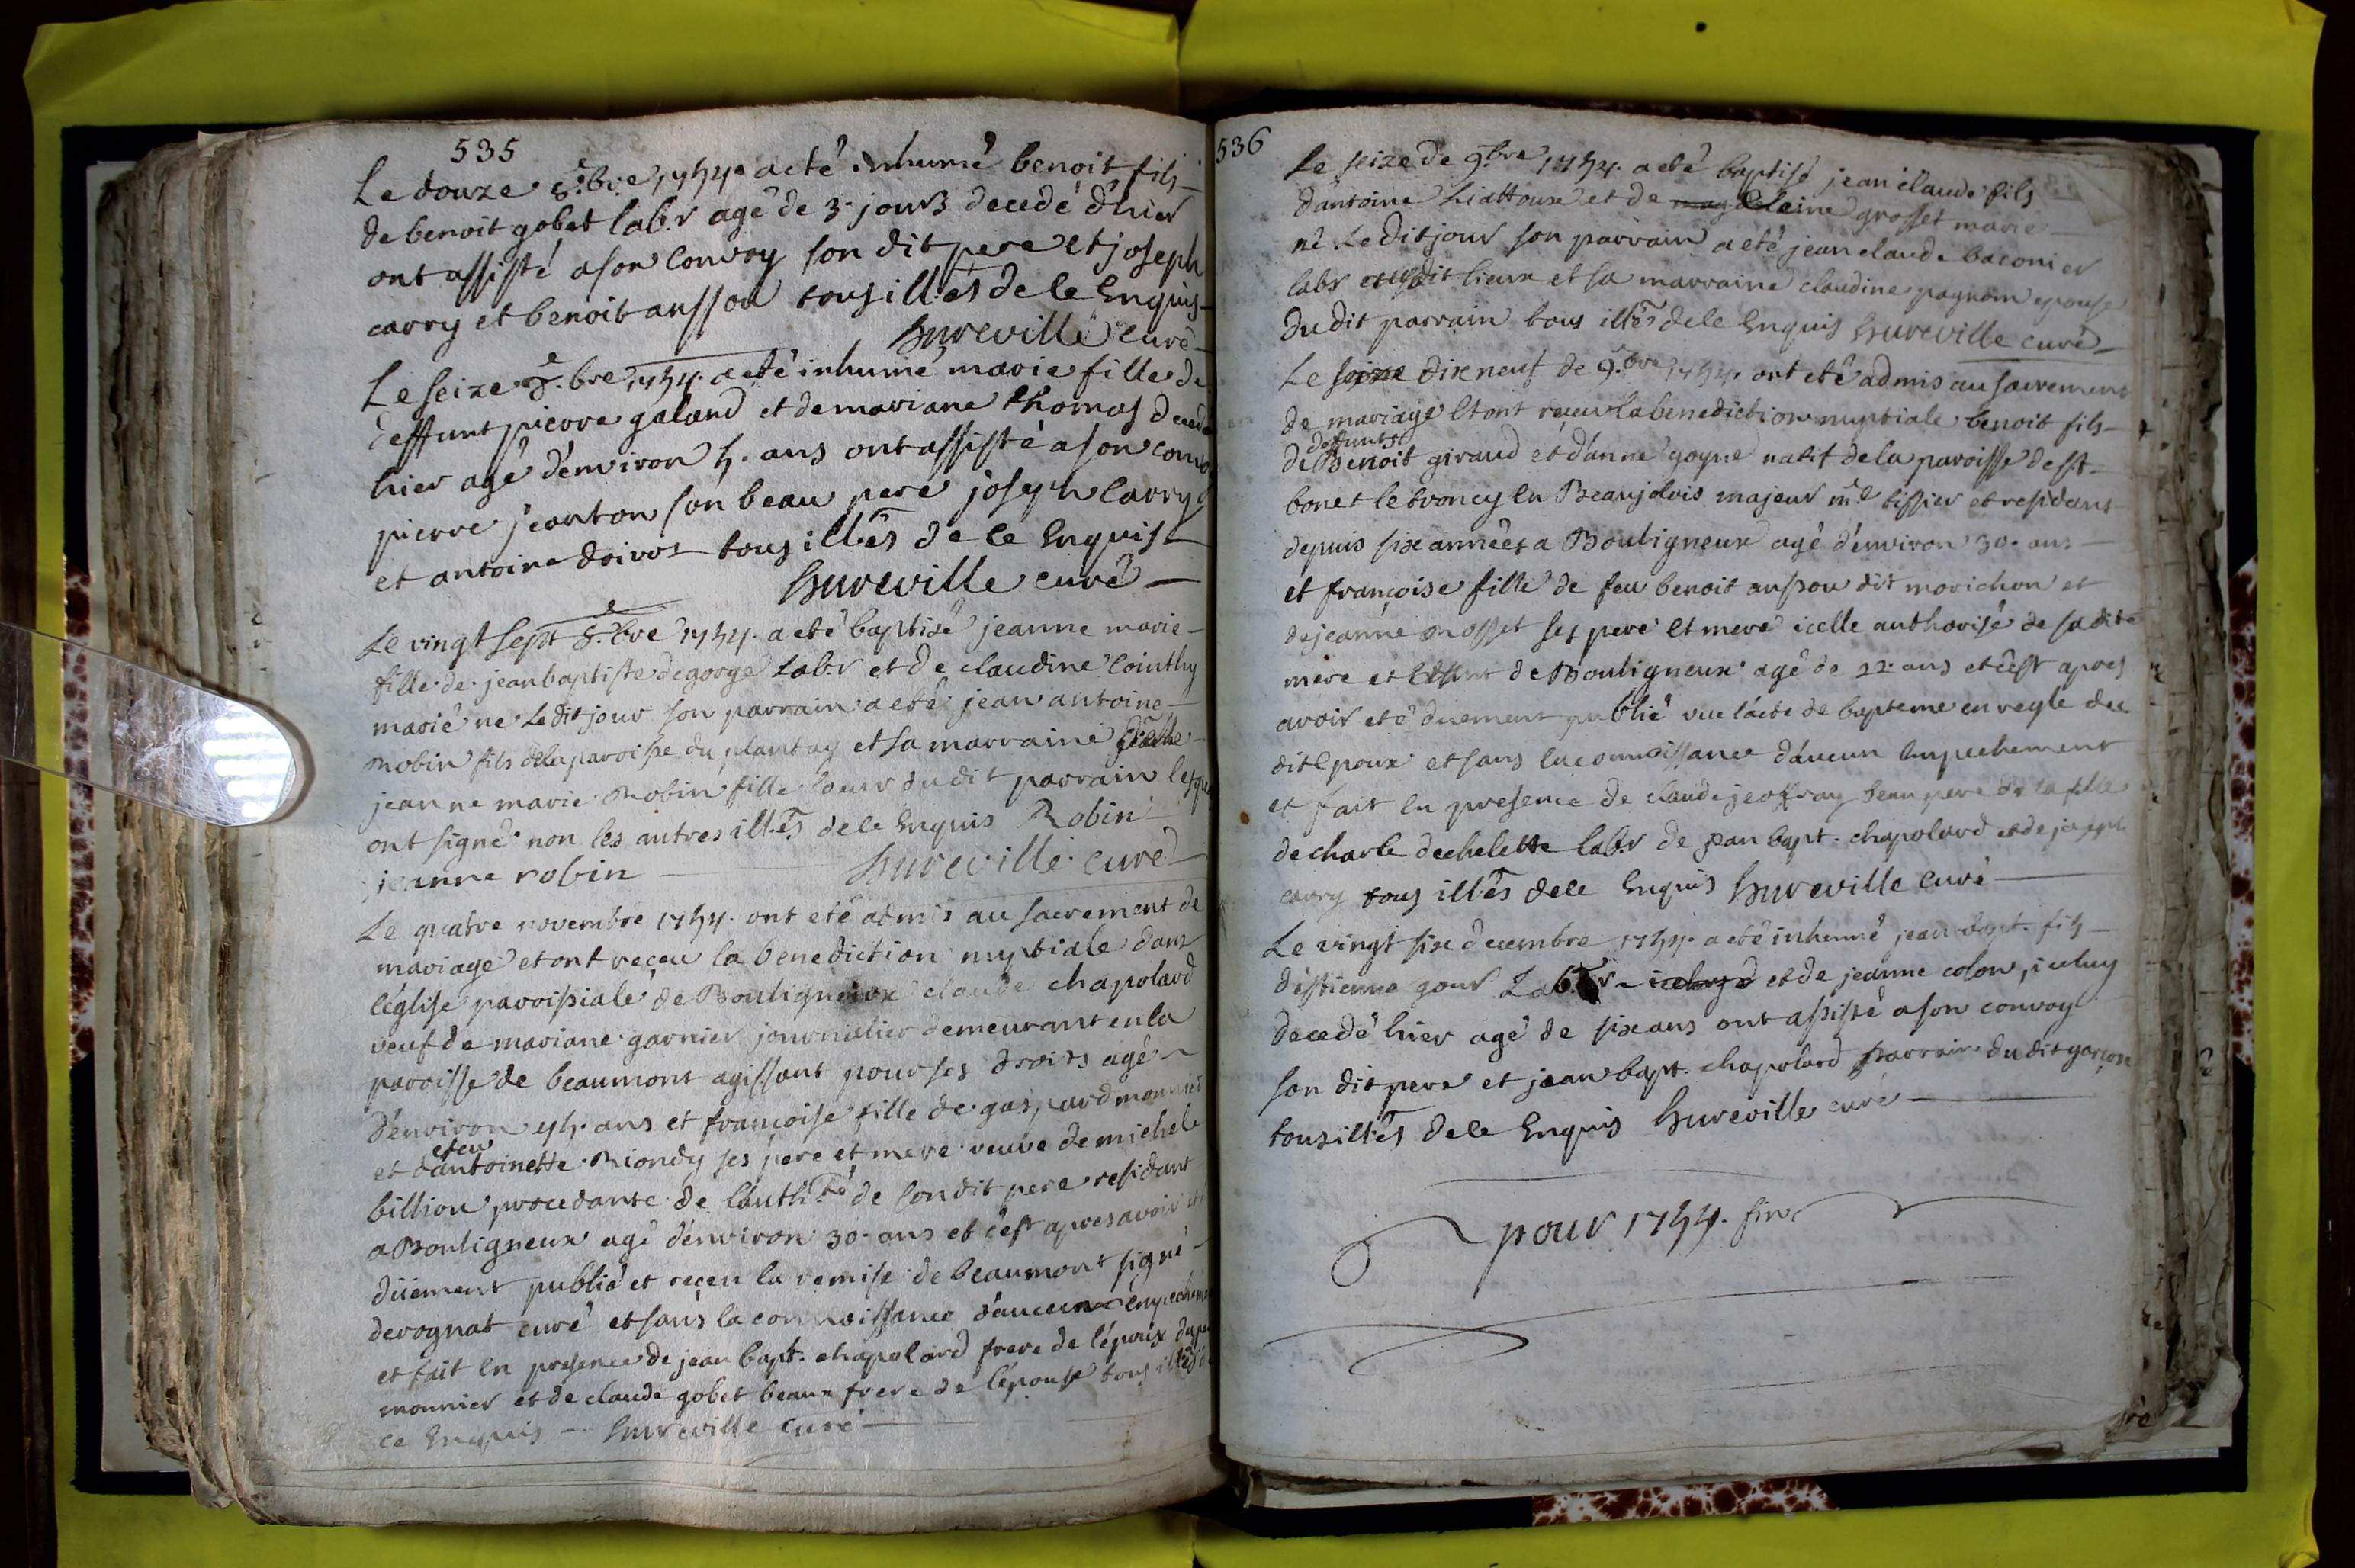 535
Le douze 8.bre 1754. a eté inhumé benoit fils
de benoit gobet lab.r agé de 3. jours decedé d'hier
ont assisté a son convoy son dit pere et joseph
carry et benoit aussou tous ill.és de ce Enquis
hureville curé
Le seize 8.bre 1754. a eté inhumé marie fille de
deffunt pierre galand et de mariane thomas
hier agé d'environ 5. ans ont assisté a son
pierre jeanton son beau pere joseph carry
et antoine doivos tous ill.és de ce Enquis
hureville curé
Le vingt sept 8.bre 1754. a eté baptisé jeanne marie
fille de jean baptiste degorge lab.r et de claudine Cointhy
marié ne le dit jour son parrain a eté jean antoine
Robin fils de la paroisse du plantay et sa marraine
jeanne marie Robin fille soeur du dit parrain
ont signé non les autres ill.és de ce Enquis Robin
jeanne robin hureville curé
Le quatre novembre 1754. ont eté admis au sacrement de
mariage et ont reçeu la benediction nuptiale dans
l'église paroissiale de Bouligneux claude chapolard
veuf de mariane garnier journalier demeurant en la
paroisse de beaumont agissant pour ses droits agé
d'environ 45. ans et françoise fille de gaspard monnier
et d'antoinette Riondy ses pere et mere veuve de michel
billion procedante de l'auth.té de son dit pere residant
a Bouligneux agé d'environ 30. ans et c'est apres avoir eté
düement publié et reçeu la remise de beaumont signé
derognat curé et sans la connoissance d'aucun
et fait en presence de jean bapt. chapolard frere de l'époux
monnier et de claude gobet beaux frere de l'épouse tous
ce Enquis hureville curé
536
Le seize de 9.bre 1754. a eté baptisé jean claude fils
d'antoine Liattoux et de magdeleine grosset marié
né le dit jour son parrain a eté jean claude baconier
lab.r dit lieux et sa marraine claudine pagnom epouse
du dit parrain tous ill.és de ce Enquis hureville curé
Le seize dix neuf de 9.bre 1754. ont eté admis au sacrement
de mariage et ont reçeu la benediction nuptiale benoit fils
deffunts
de Benoit giraud et d'anne goyne natif de la paroisse de st
bonet le troncy en Beaujolois majeur m.e tissier et residant
depuis six années a Bouligneux agé d'environ 30. ans
et françoise fille de feu benoit aussou dit morichon et
de jeanne mosset ses pere et mere icelle authorisé de sa dite
mere et de Bouligneux agé de 22. ans et c'est apres
avoir eté duement publié vue l'acte de bapteme en regle du
dit epoux et sans la connoissance d'aucun Empechement
et fait en presence de claude jeoffray beau pere de la fille
de charle dechelette lab.r de jean bapt. chapolard et de joseph
carry tous ill.és de ce Enquis hureville curé
Le vingt six decembre 1754. a eté inhumé jean bapt. fils
d'estienne gour Lab.r et de jeanne colon, iceluy
decedé hier agé de six ans ont assisté a son convoy
son dit pere et jean bapt. chapolard parrain du dit garçon
tous ill.és de ce Enquis hureville curé
pour 1754. fin